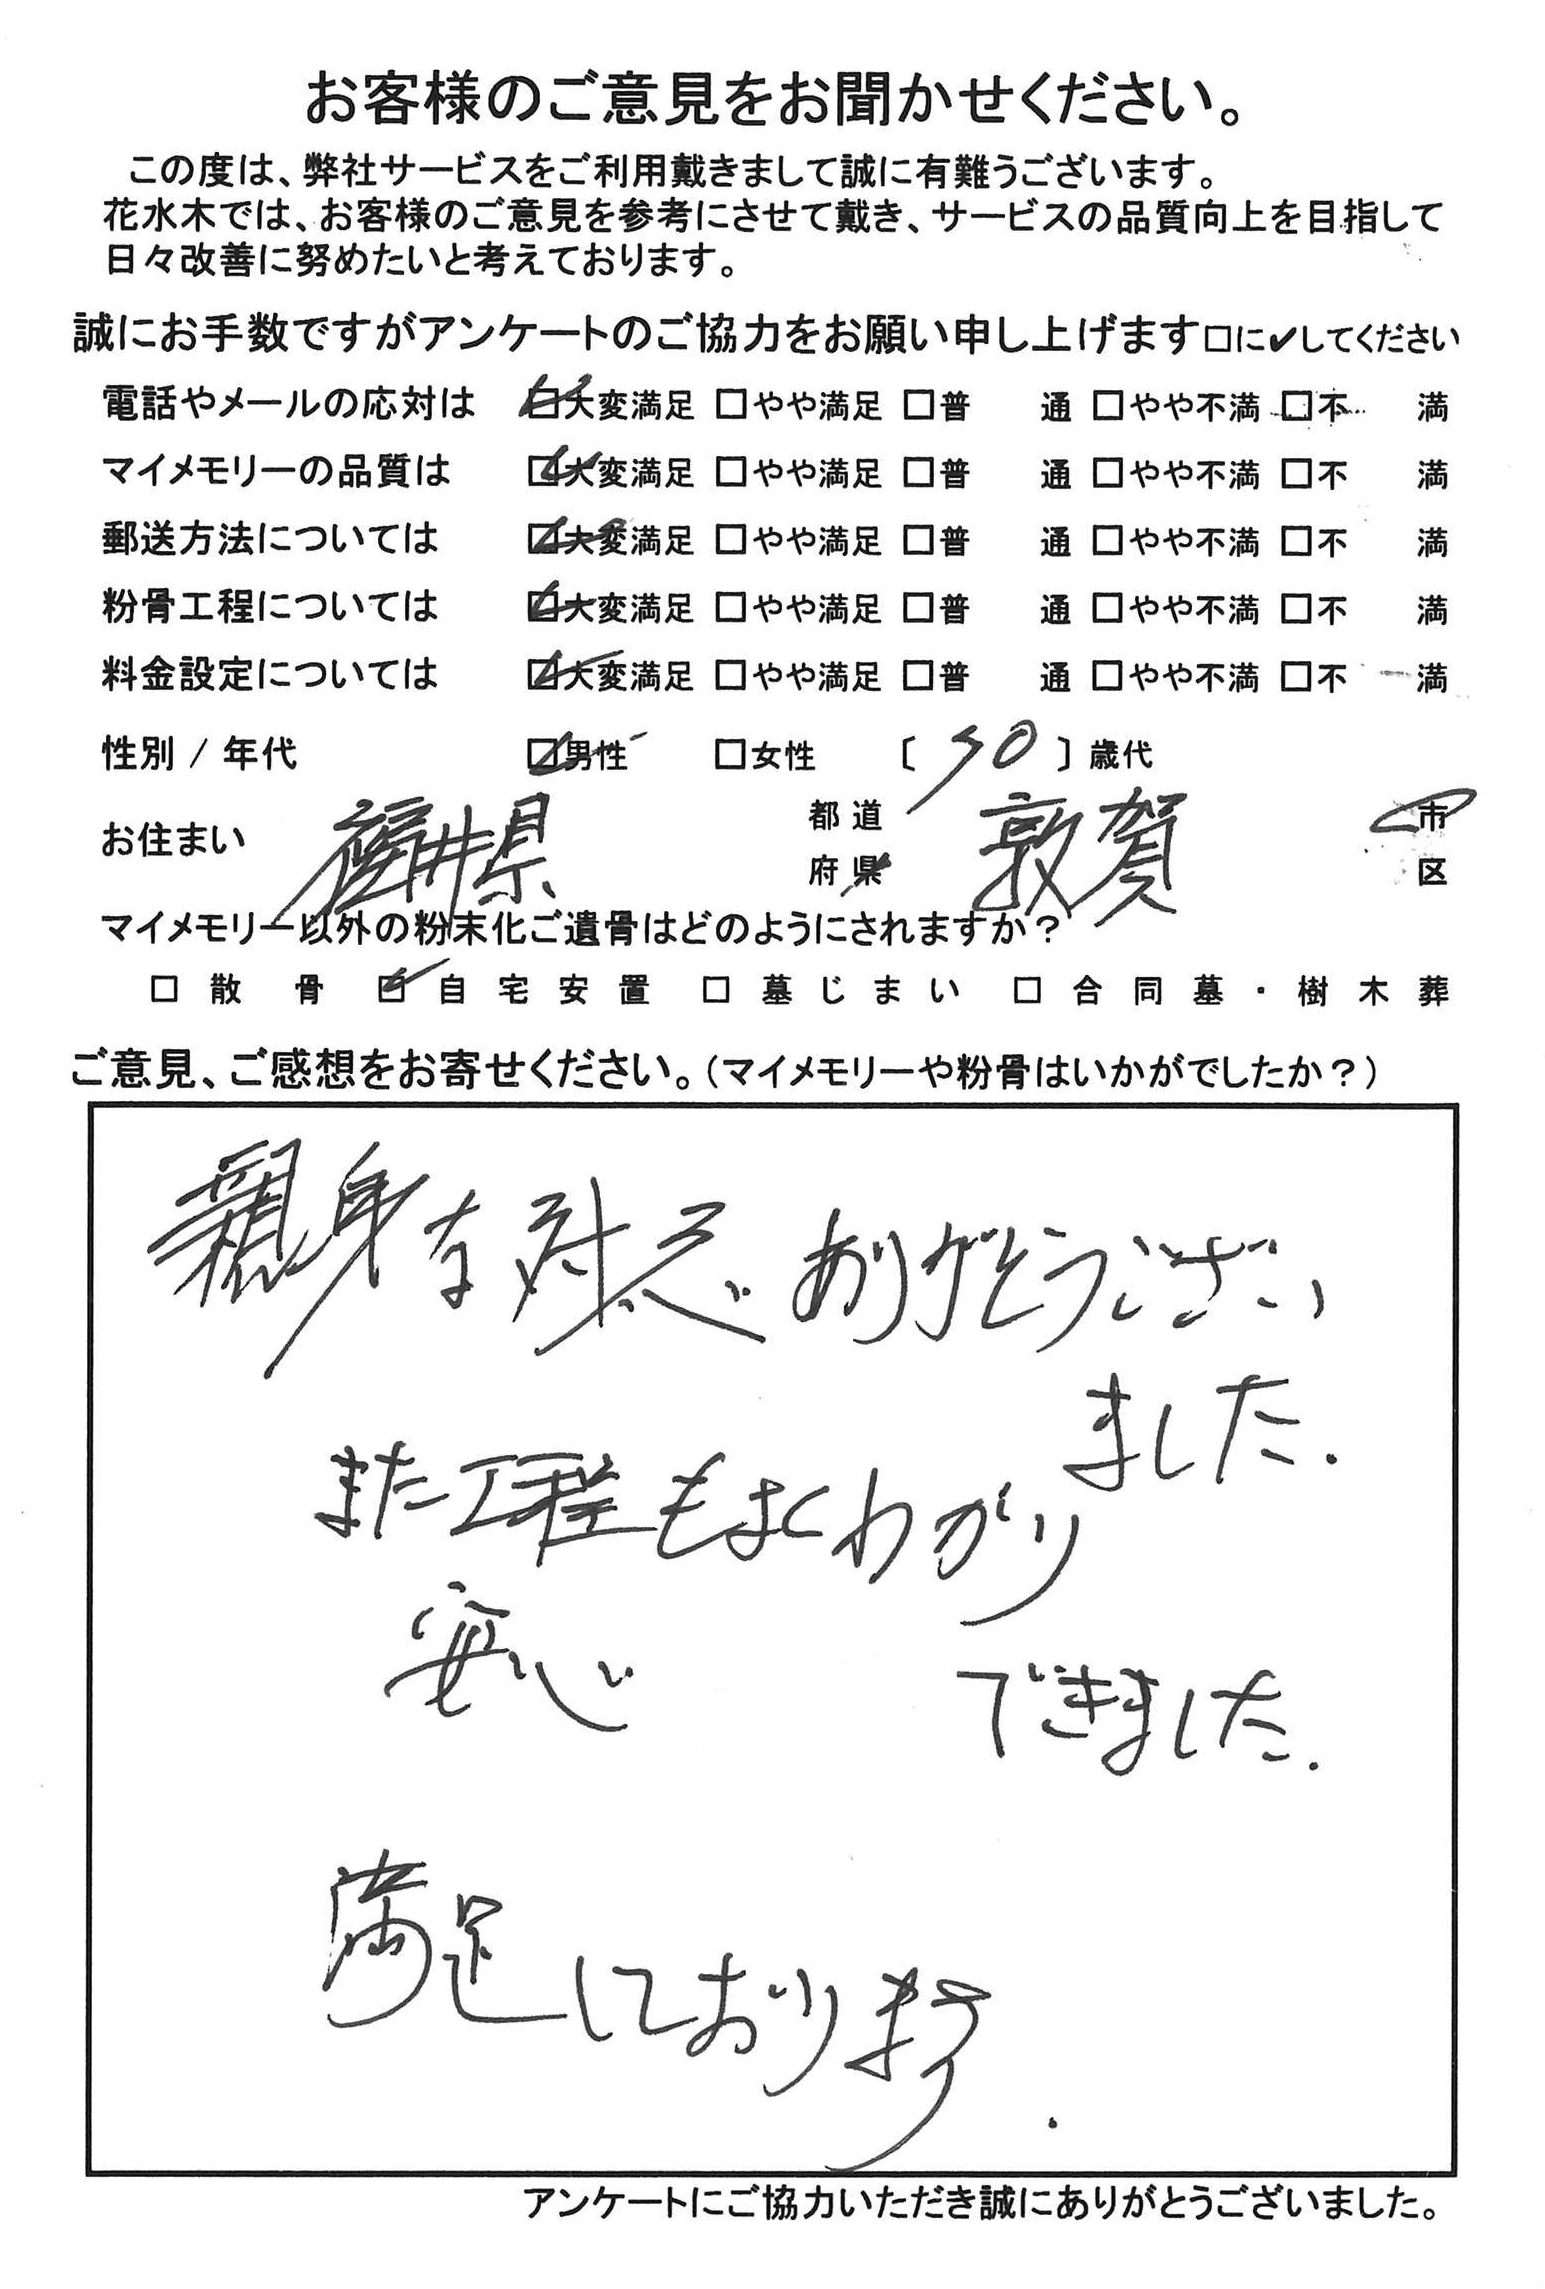 お客様のご意見をお聞かせください。
この度は、弊社サービスをご利用戴きまして誠に有難うございます。
花水木では、お客様のご意見を参考にさせて戴き、サービスの品質向上を目指して
日々改善に努めたいと考えております。
誠にお手数ですがアンケートのご協力をお願い申し上げます□に✔してください
電話やメールの応対は ☑大変満足 □やや満足 □普 通 □やや不満 □不 満
マイメモリーの品質は ☑大変満足 □やや満足 □普 通 □やや不満 □不 満
郵送方法については ☑大変満足 □やや満足 □普 通 □やや不満 □不 満
粉骨工程については ☑大変満足 □やや満足 □普 通 □やや不満 □不 満
料金設定については ☑大変満足 □やや満足 □普 通 □やや不満 □不 満
性別 / 年代 ☑男性 □女性 〔 〕歳代
お住まい 福井県 都道府県 敦賀 市区
マイメモリー以外の粉末化ご遺骨はどのようにされますか?
□ 散骨 ☑ 自宅安置 □ 墓じまい □ 合同墓・樹木葬
ご意見、ご感想をお寄せください。(マイメモリーや粉骨はいかがでしたか?)
親身な対応ありがとうござい
ました.
また工程もよくわかり
安心 できました.
満足しております.
アンケートにご協力いただき誠にありがとうございました。